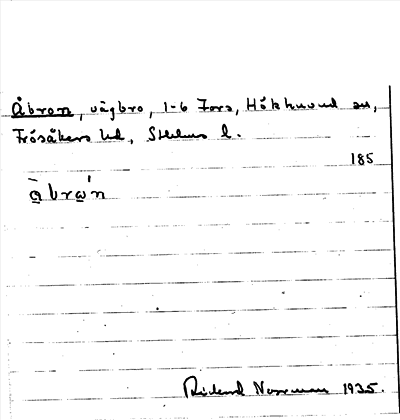 Åbron, vägbro, 1-6 Fors, Hökhuvud sn,
Frösåkers hd, Sthlms l.
185
Rickard Norrman 1935.